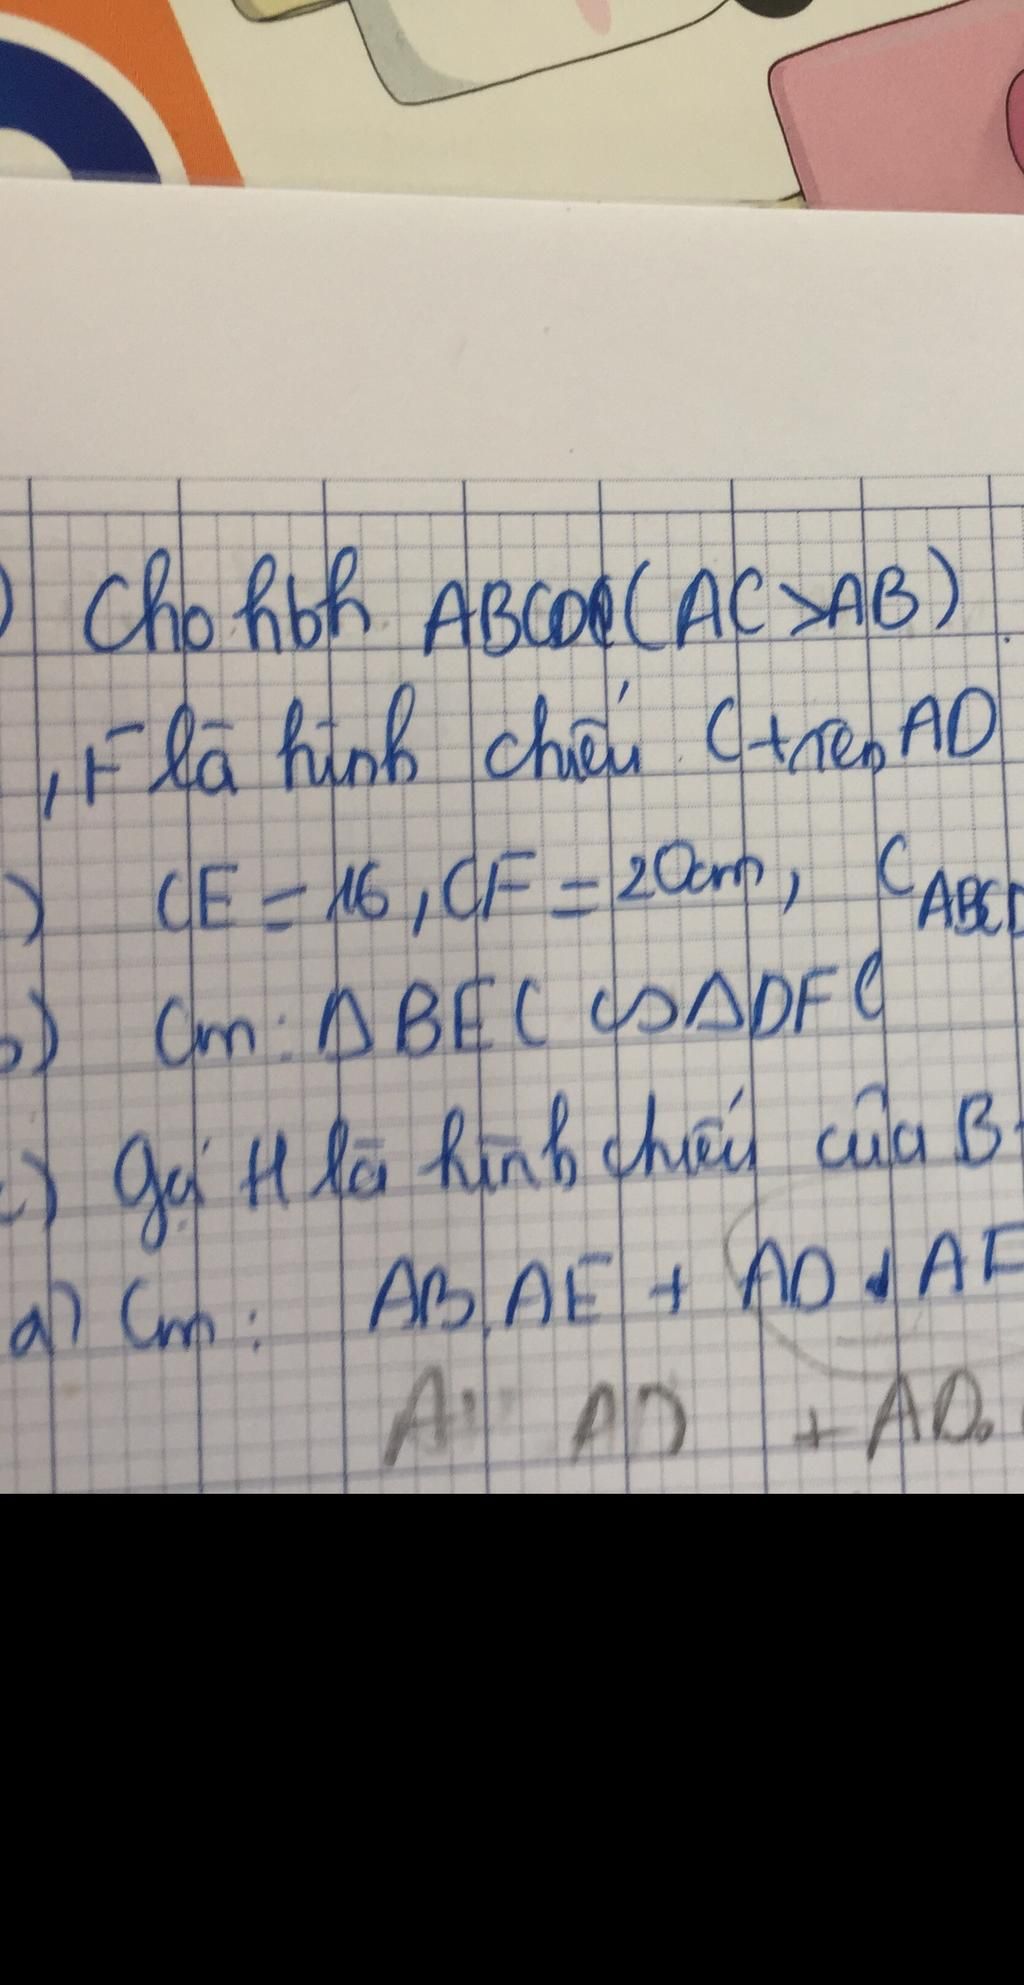 ) Cho hbh ABCD (AC > AB)
, F là hình chiếu C trên AD
) CE = 16, CF = 20cm, C ABCD
b) Cm: Δ BEC ∽ Δ DFC
c) Gọi H là hình chiếu của B
d) Cm: AB.AE + AD.AF
AD + AD.